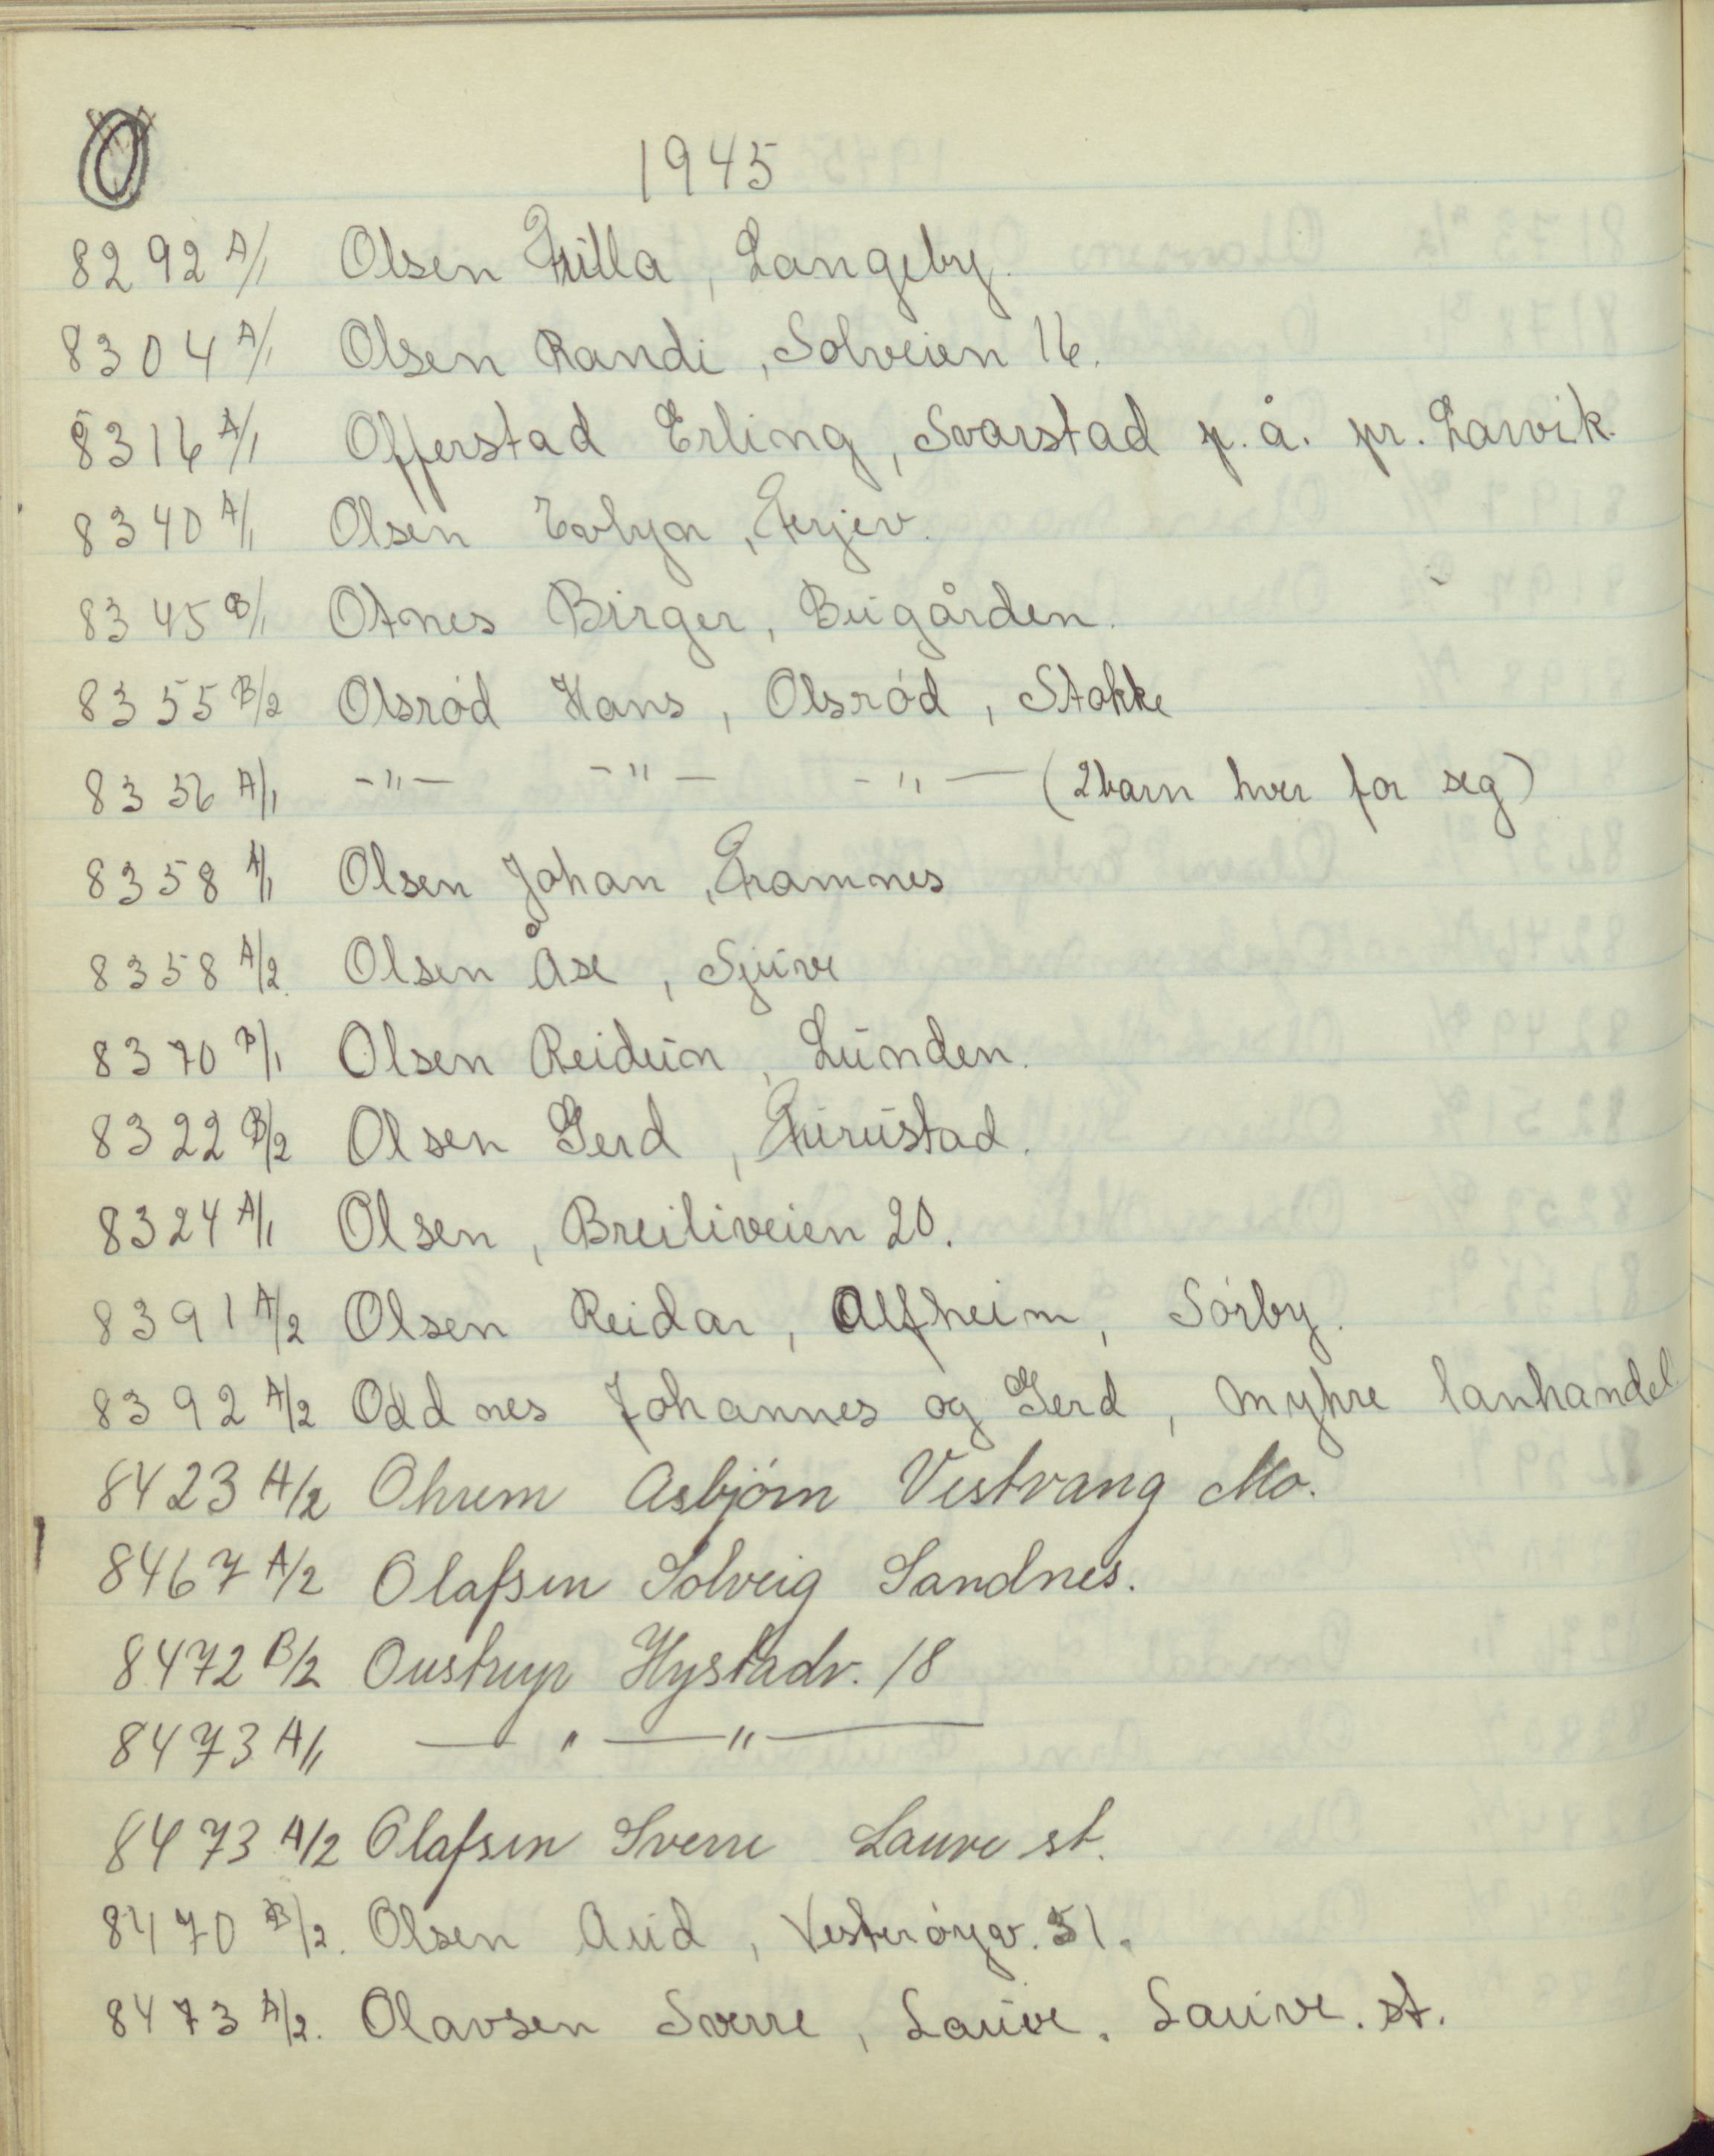 O
1945
8292 A/1 Olsen Hilla, Langeby.
8304 A/1 Olsen Randi, Solveien 16.
8316 A/1 Offerstad Erling, Svarstad p.å. pr. Larvik.
8340 A/1 Olsen Evlyn,
8345 B/1 Otnes Birger, Bugården.
8355 B/2 Olsrød Hans, Olsrød, Stokke
8356 A/1 -"- -"- -"- (2 barn hver for seg)
8358 A/1 Olsen Johan, Framnes
8358 A/2. Olsen Åse, Sjuve
8370 B/1 Olsen Reidun, Lunden.
8322 B/2 Olsen Gerd, Furustad.
8324 A/1 Olsen, Breiliveien 20.
8391 A/2 Olsen Reidar, Alfheim, Sørby.
8392 A/2 Oddnes Johannes og Gerd, Myhre lanhandel
8423 A/2 Ohrem Asbjørn Vestvang Mo.
8467 A/2 Olafsen Solveig Sandnes.
8472 B/2 Oustrup Hystadv. 18
8473 A/1 — " — " —
8473 A/2 Olafsen Sverre Lauve st.
8470 B/2. Olsen Aud, Vesterøyv. 51.
8473 A/2. Olavsen Sverre, Lauve. Lauve. st.